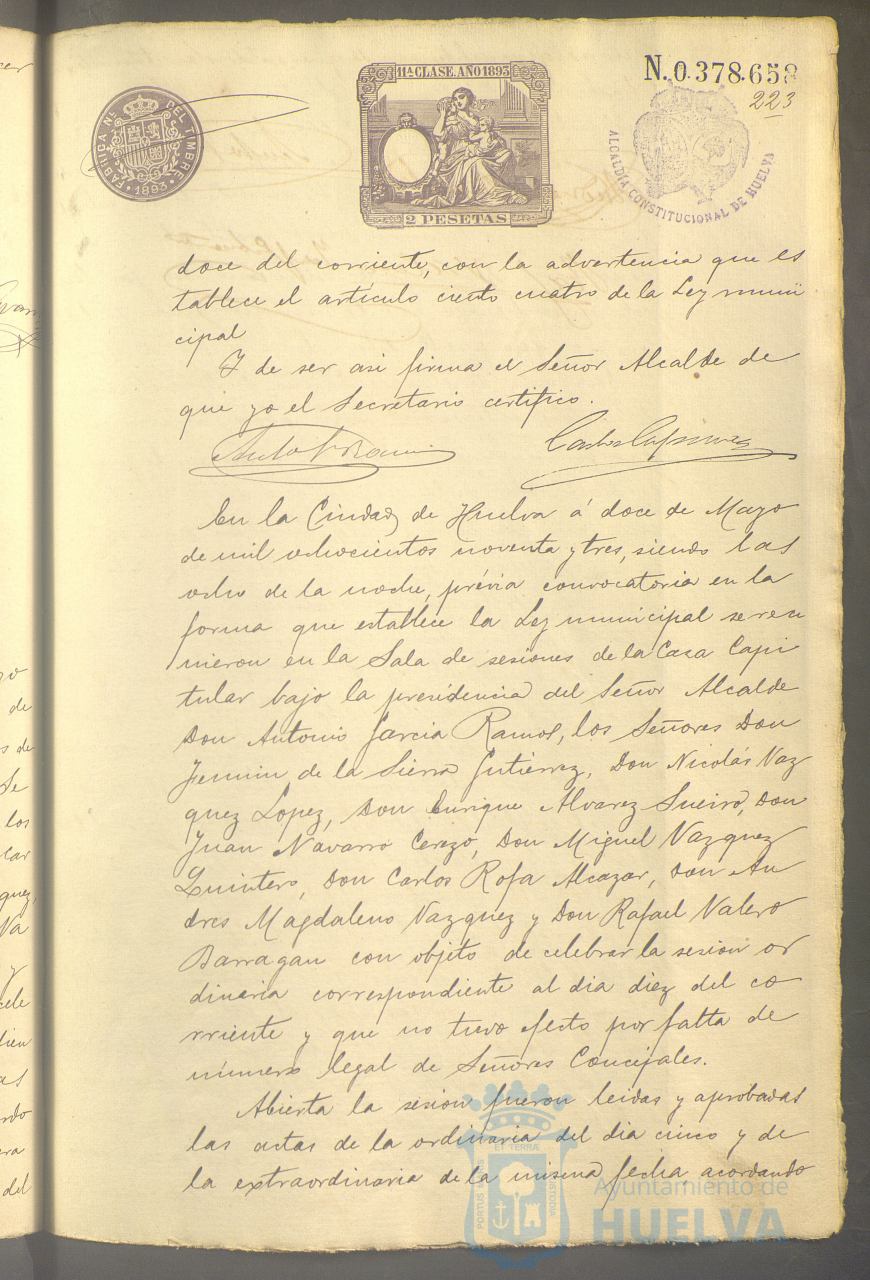 11ª CLASE. AÑO 1893
N. 0.378.658
223
FABRICA Nal. DEL TIMBRE
1893
2 PESETAS
ALCALDÍA CONSTITUCIONAL DE HUELVA
doce del corriente, con la advertencia que es
tablece el artículo ciento cuatro de la Ley muni
cipal
Y de ser asi firma el Señor Alcalde de
que yo el Secretario certifico.
En la Ciudad de Huelva á doce de Mayo
de mil ochocientos noventa y tres, siendo las
ocho de la noche, prévia convocatoria en la
forma que establece la Ley municipal se reu
nieron en la Sala de sesiones de la Casa Capi
tular bajo la presidencia del Señor Alcalde
Don Antonio Garcia Ramos, los Señores Don
Fermin de la Sierra Gutiérrez, Don Nicolás Vaz
quez Lopez, Don Enrique Alvarez Sueiro, Don
Juan Navarro Cerezo, Don Miguel Vazquez
Quintero, Don Carlos Rofa Alcazar, Don An
dres Magdaleno Vazquez y Don Rafael Valero
Barragan con objeto de celebrar la sesion or
dinaria correspondiente al dia diez del co
rriente y que no tuvo efecto por falta de
número legal de Señores Concejales.
Abierta la sesion fueron leidas y aprobadas
las actas de la ordinaria del dia cinco y de
la extraordinaria de la misma fecha, acordando
PORTUS
ET TERRÆ
CUSTODIA
Ayuntamiento de
HUELVA